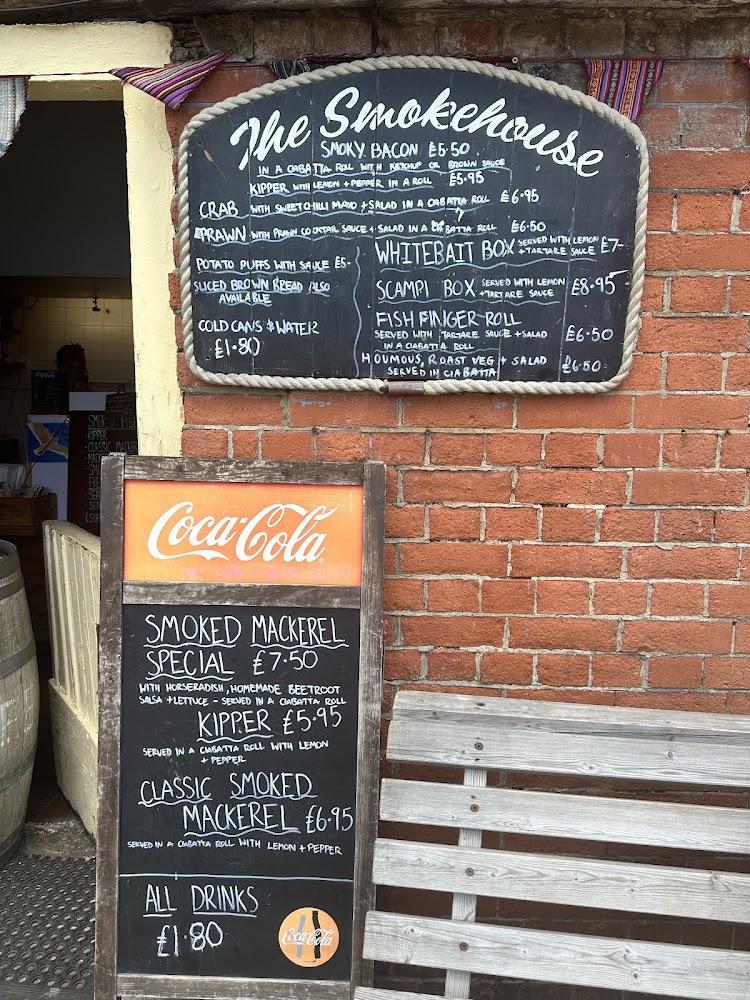 The Smokehouse
SMOKY BACON £5.50
IN A CIABATTA ROLL WITH KETCHUP OR BROWN SAUCE
KIPPER WITH LEMON + PEPPER IN A ROLL £5.95
CRAB WITH SWEET CHILLI MAYO + SALAD IN A CIABATTA ROLL £6.95
PRAWN WITH PRAWN COCKTAIL SAUCE + SALAD IN A CIABATTA ROLL £6.50
POTATO PUFFS WITH SAUCE £5-
SLICED BROWN BREAD ALSO
AVAILABLE
COLD CANS & WATER
£1.80
WHITEBAIT BOX SERVED WITH LEMON
+ TARTARE SAUCE £7-
SCAMPI BOX SERVED WITH LEMON
+ TARTARE SAUCE £8.95
FISH FINGER ROLL
SERVED WITH TARTARE SAUCE + SALAD
IN A CIABATTA ROLL £6.50
HOUMOUS, ROAST VEG + SALAD
SERVED IN CIABATTA £6.50
Coca-Cola
SMOKED MACKEREL
SPECIAL £7.50
WITH HORSERADISH, HOMEMADE BEETROOT
SALSA + LETTUCE - SERVED IN A CIABATTA ROLL
KIPPER £5.95
SERVED IN A CIABATTA ROLL WITH LEMON
+ PEPPER
CLASSIC SMOKED
MACKEREL £6.95
SERVED IN A CIABATTA ROLL WITH LEMON + PEPPER
ALL DRINKS
£1.80
Coca-Cola
Coca-Cola
KIPPER